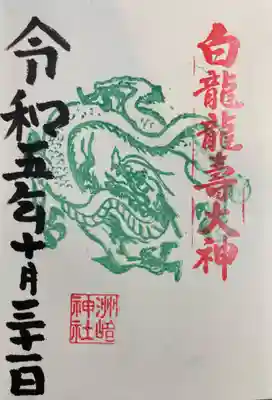 白龍龍壽大神
洲崎
神社
令和五年十月三十一日